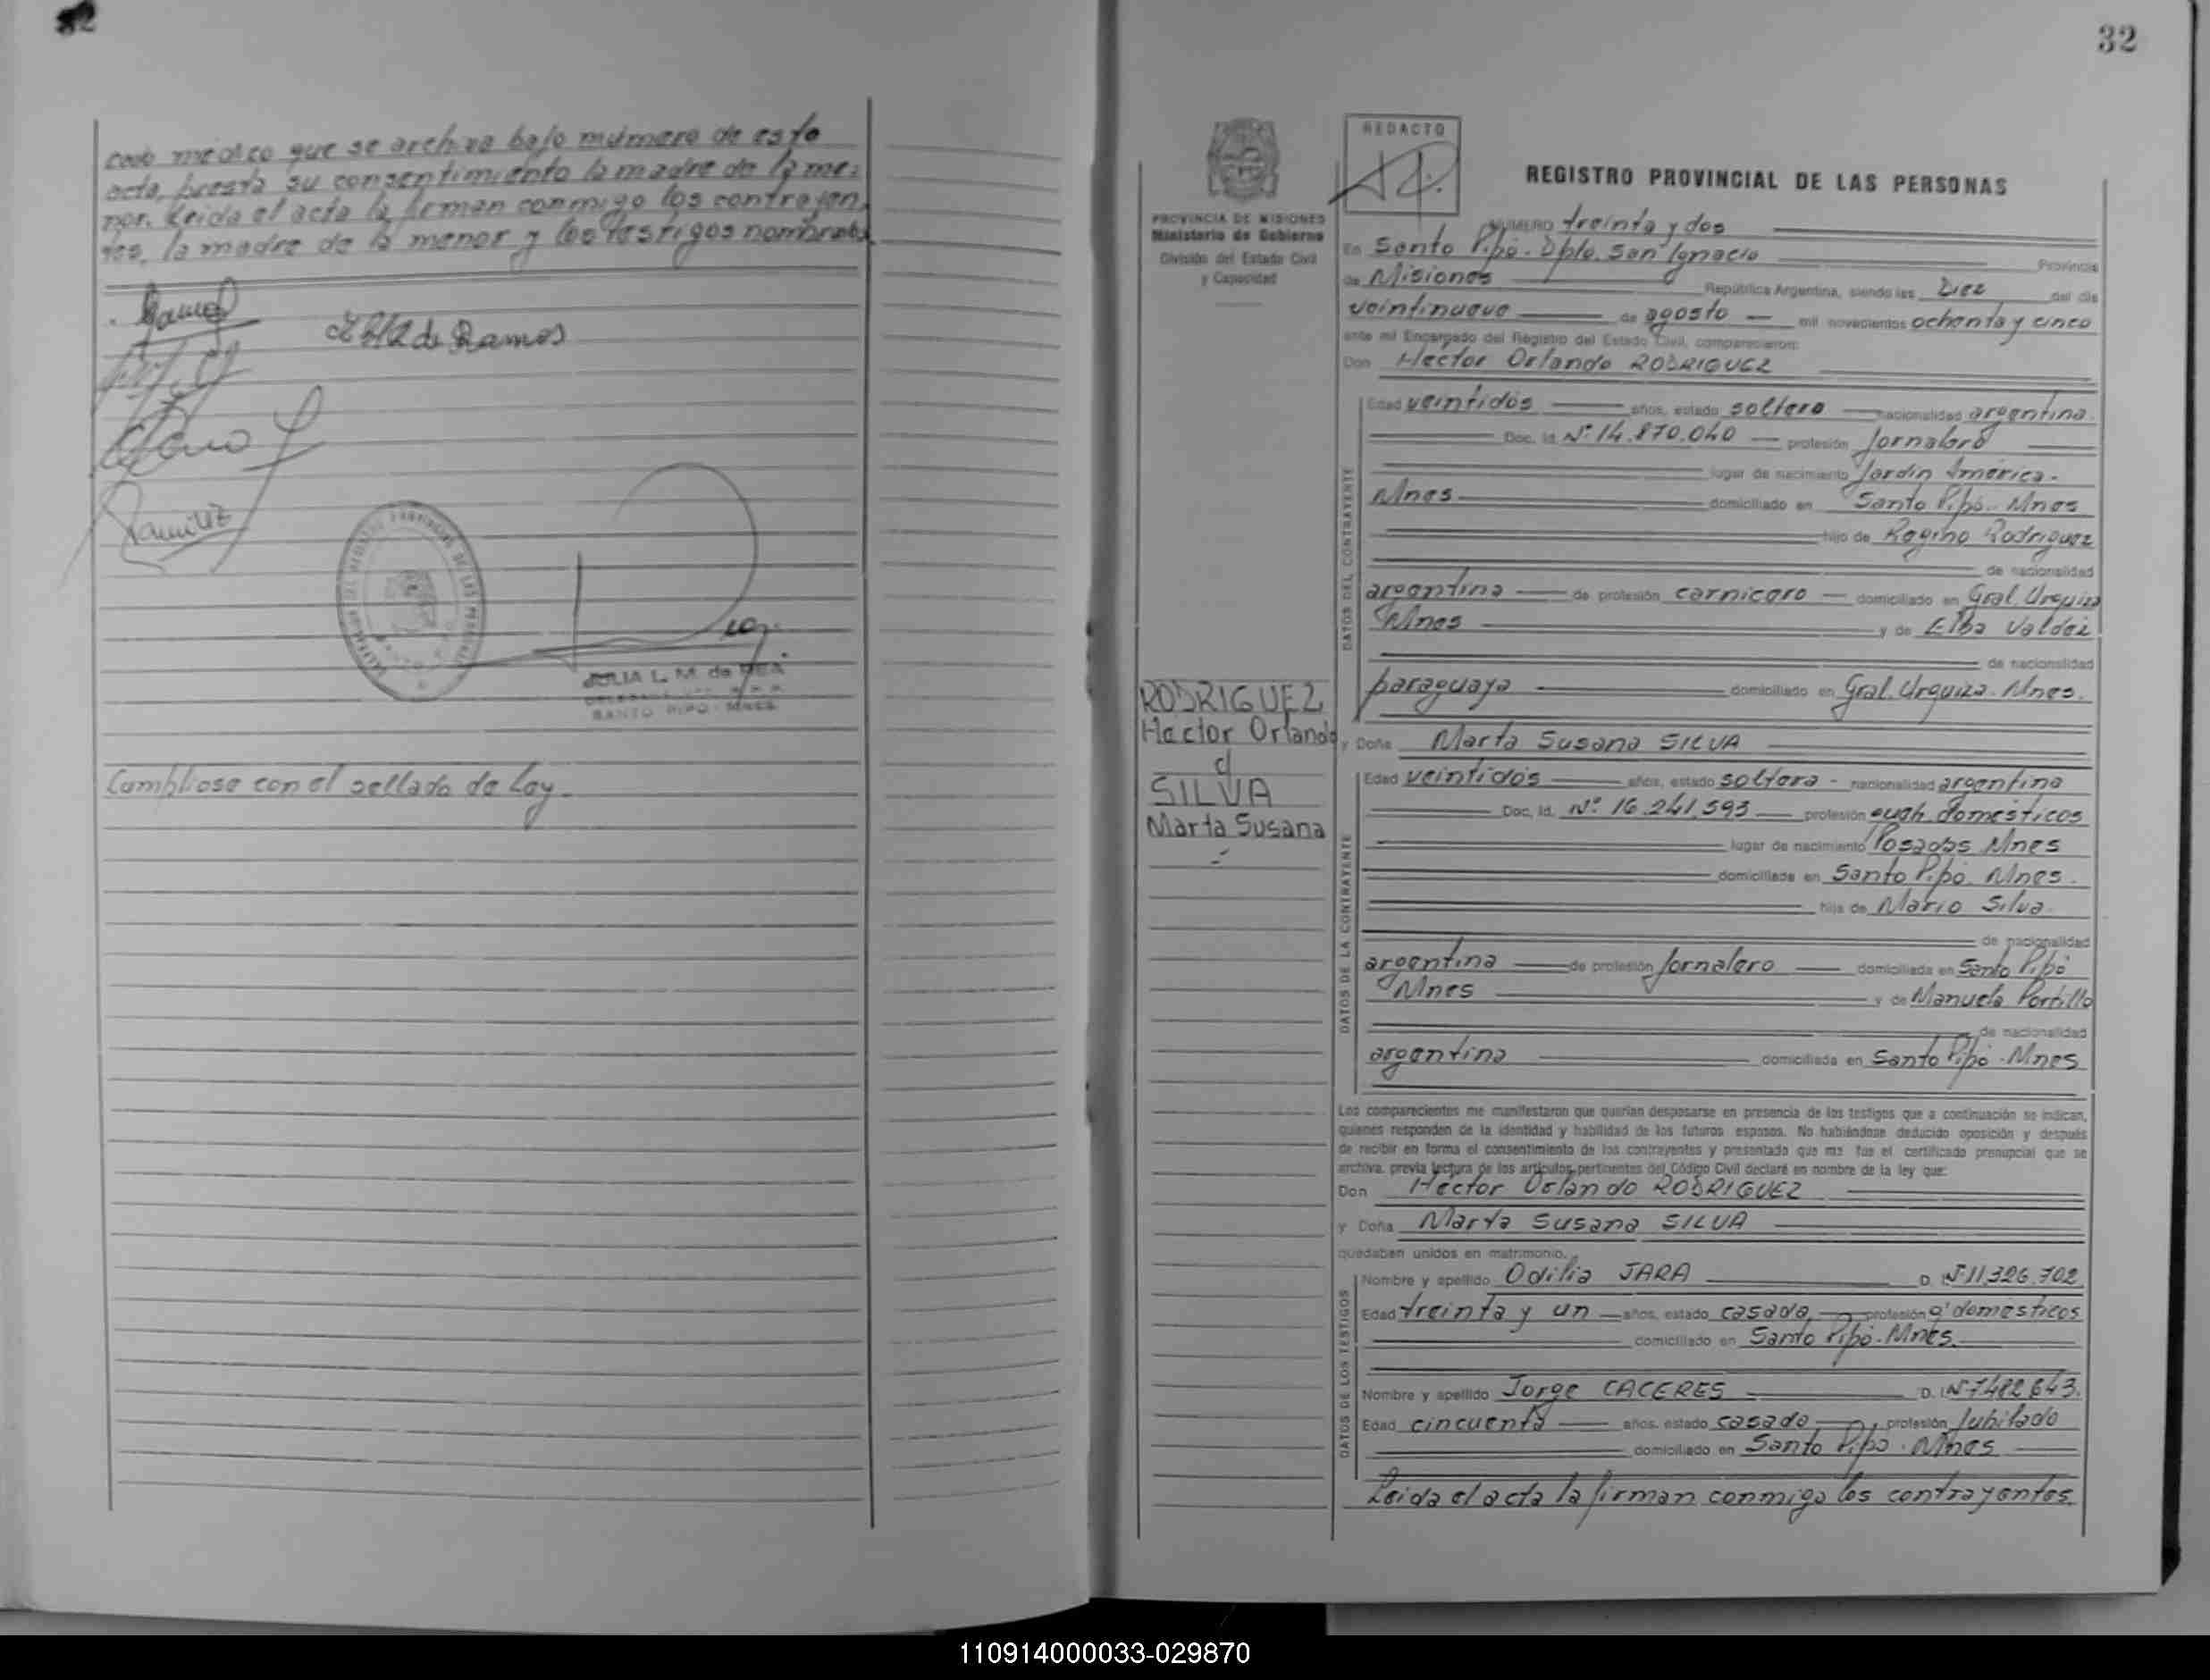 médico que se archiva bajo número de esta
acta, presta su consentimiento la madre de la me-
nor. Leida el acta la firman conmigo los contrayen
tes, la madre de la menor y los testigos nombrados
Ramos
de Ramos
Ramirez
JULIA L. M. de
SANTO PIPO - MNES
Cumpliose con el sellado de Ley.
32
PROVINCIA DE MISIONES
Ministerio de Gobierno
División del Estado Civil
y Capacidad
RODRIGUEZ
Hector Orlando
c/
SILVA
Marta Susana
REDACTO
REGISTRO PROVINCIAL DE LAS PERSONAS
NUMERO treinta y dos
En Santo Pipó. Dpto. San Ignacio Provincia
de Misiones República Argentina, siendo las Diez del día
veintinueve de agosto mil novecientos ochenta y cinco
ante mí Encargado del Registro del Estado Civil, comparecieron:
Don Hector Orlando RODRIGUEZ
DATOS DEL CONTRAYENTE
Edad veintidós años, estado soltero nacionalidad argentina.
Doc. Id. Nº 14.870.040 profesión Jornalero
lugar de nacimiento Jardín América-
Mnes domiciliado en Santo Pipó. Mnes
hijo de Regino Rodriguez
de nacionalidad
argentina de profesión carnicero domiciliado en Gral. Urquiza
Mnes y de Elba Valdez
de nacionalidad
paraguaya domiciliado en Gral. Urquiza. Mnes.
y Doña Marta Susana SILVA
DATOS DE LA CONTRAYENTE
Edad veintidós años, estado soltera - nacionalidad argentina
Doc. Id. Nº 16.241.593 profesión domésticos
lugar de nacimiento Posadas Mnes
domiciliada en Santo Pipó. Mnes.
hija de Mario Silva.
de nacionalidad
argentina de profesión Jornalero domiciliada en Santo Pipó
Mnes y de Manuela Portillo
de nacionalidad
argentina domiciliada en Santo Pipó - Mnes
Los comparecientes me manifestaron que querían desposarse en presencia de los testigos que a continuación se indican,
quienes responden de la identidad y habilidad de los futuros esposos. No habiéndose deducido oposición y después
de recibir en forma el consentimiento de los contrayentes y presentado que me fue el certificado prenupcial que se
archiva, previa lectura de los artículos pertinentes del Código Civil declaré en nombre de la ley que:
Don Héctor Orlando RODRIGUEZ
y Doña Marta Susana SILVA
quedaban unidos en matrimonio.
DATOS DE LOS TESTIGOS
Nombre y apellido Odilia JARA D. Nº 11.326.702
Edad treinta y un años, estado casada profesión q' domésticos
domiciliado en Santo Pipó. Mnes.
Nombre y apellido Jorge CACERES D. I. Nº 7.482.643.
Edad cincuenta años, estado casado profesión Jubilado
domiciliado en Santo Pipó. Mnes
Leida el acta la firman conmigo los contrayentes.
110914000033-029870